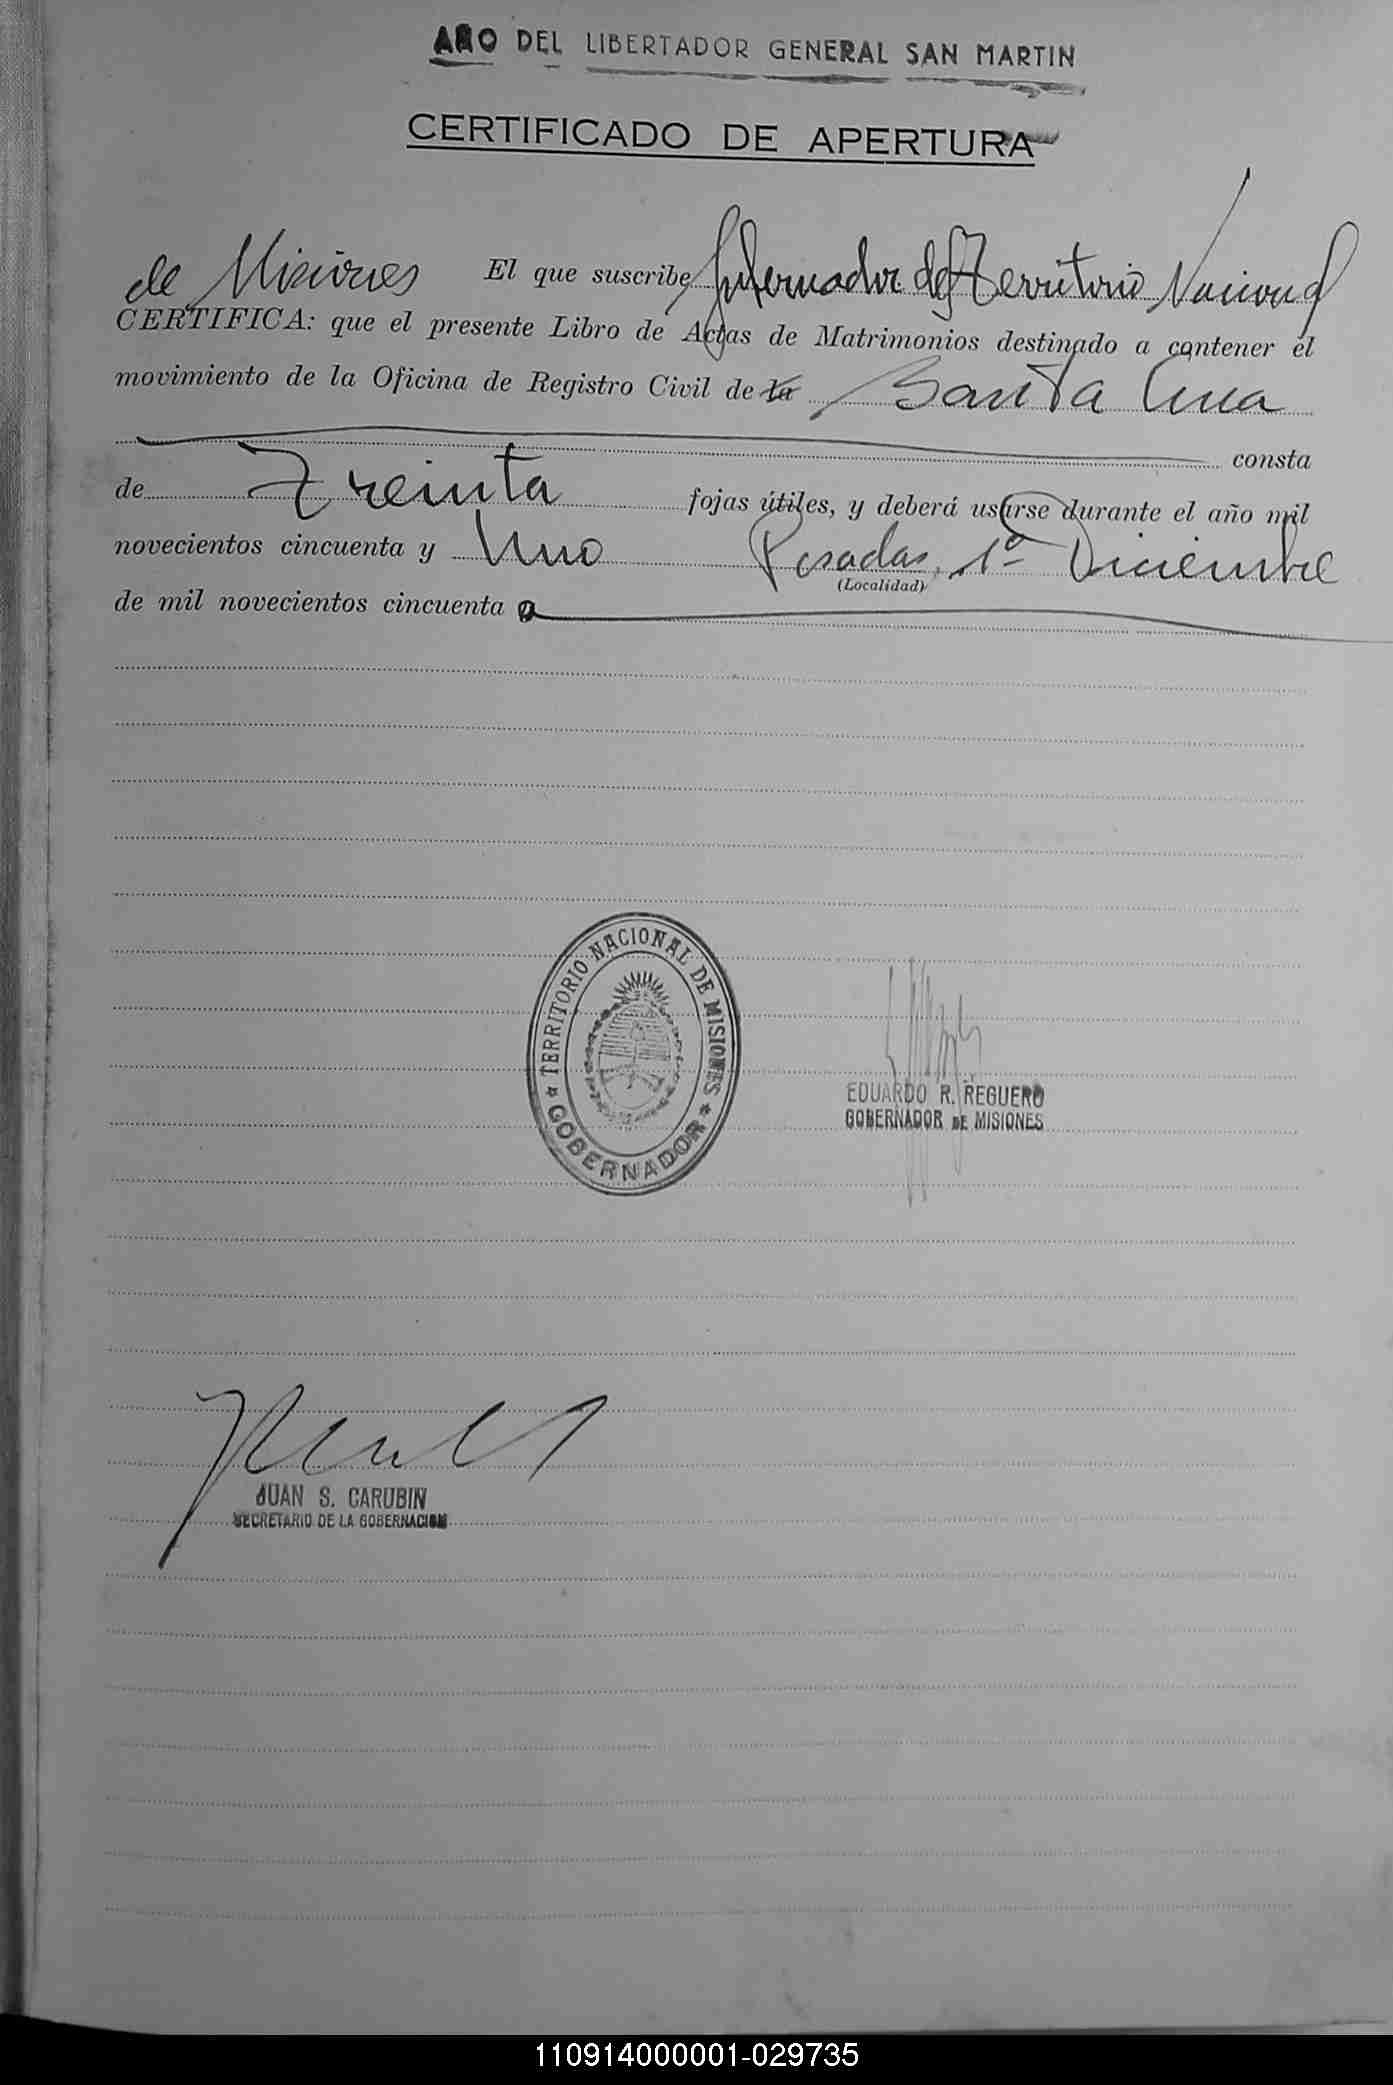 AÑO DEL LIBERTADOR GENERAL SAN MARTIN
CERTIFICADO DE APERTURA
El que suscribe Gobernador del Territorio Nacional
de Misiones
CERTIFICA: que el presente Libro de Actas de Matrimonios destinado a contener el
movimiento de la Oficina de Registro Civil de la Santa Ana
consta
de Treinta fojas útiles, y deberá usarse durante el año mil
novecientos cincuenta y Uno Posadas, 1º Diciembre
(Localidad)
de mil novecientos cincuenta
TERRITORIO NACIONAL DE MISIONES
GOBERNADOR
EDUARDO R. REGUERO
GOBERNADOR DE MISIONES
JUAN S. CARUBIN
SECRETARIO DE LA GOBERNACION
110914000001-029735